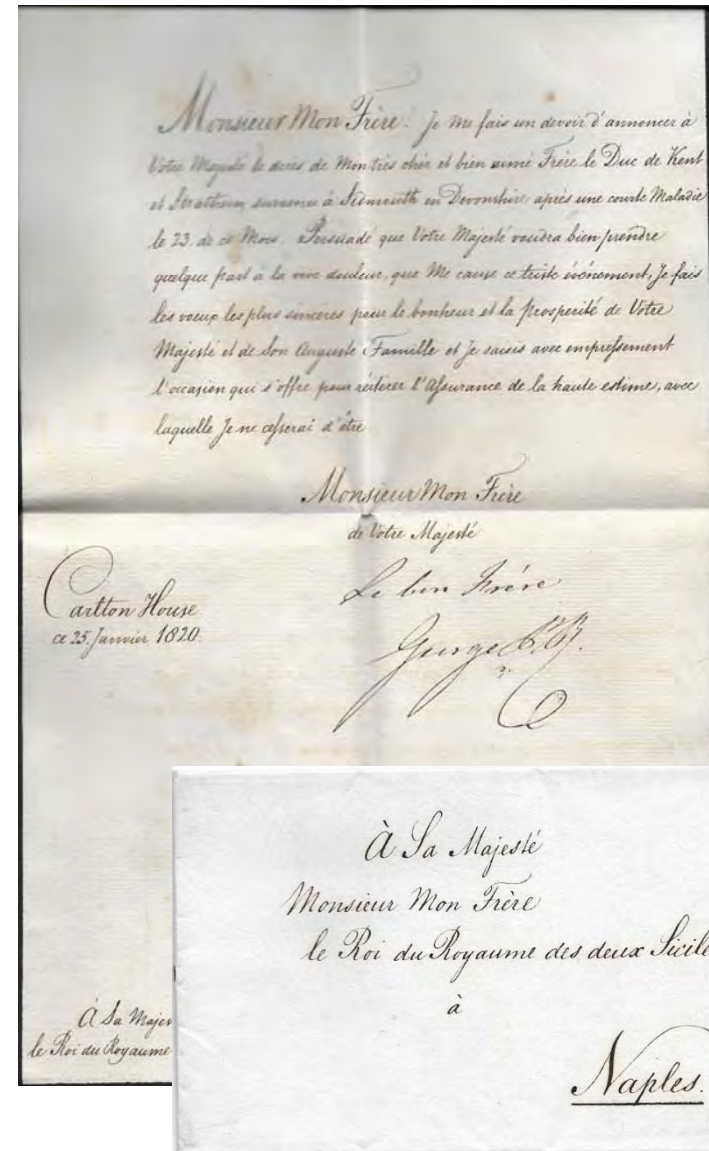 Monsieur Mon Frère! Je me fais un devoir d'annoncer à
Votre Majesté le décès de Mon très chèr et bien aimé Frère le Duc de Kent
et Strathern survenu à Sidmouth en Devonshire après une courte Maladie
le 23. de ce Mois. Persuadé que Votre Majesté voudra bien prendre
quelque part à la vive douleur, que Me cause ce triste événement, Je fais
les voeux les plus sincères pour le bonheur et la Prosperité de Votre
Majesté et de Son Auguste Famille et Je saisis avec empressement
l'occasion qui s'offre pour réitérer l'Assurance de la haute estime, avec
laquelle Je ne cesserai d'être
Monsieur Mon Frère
de Votre Majesté
Le bon Frère
George P. R.
Carlton House
ce 25. Janvier 1820.
À Sa Majes
le Roi du Royaume
À Sa Majesté
Monsieur Mon Frère
le Roi du Royaume des deux Sicile
à
Naples.